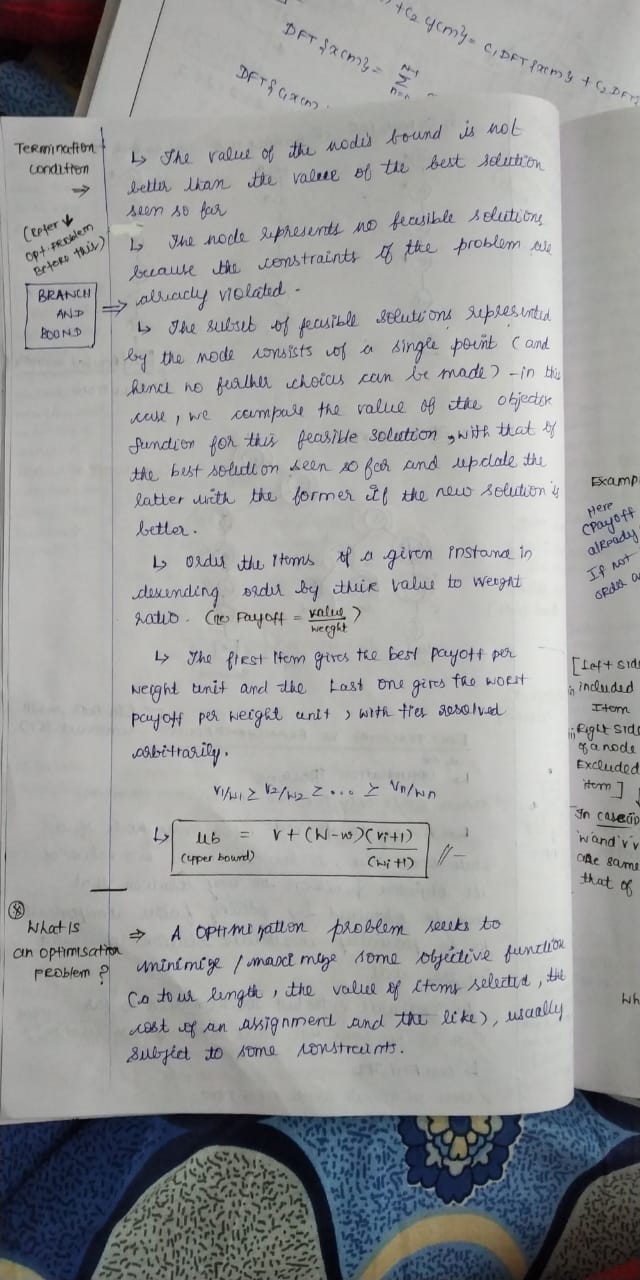 + C2 y(m)} = C1 DFT{x(m)} + C2 DFT
DFT{x(m)} = N-1 Σ n=
DFT{C1x(m)
Termination
condition
⇒
(Refer ↓
opt. problem
Before this)
BRANCH
AND
BOUND
⇒
↳ The value of the node's bound is not
better than the value of the best solution
seen so far
↳ The node represents no feasible solutions
because the constraints of the problem are
already violated.
↳ The subset of feasible solutions represented
by the node consists of a single point (and
hence no further choices can be made) - in this
case, we compare the value of the objective
function for this feasible solution, with that of
the best solution seen so far and update the
latter with the former if the new solution is
better.
↳ Order the items of a given instance in
descending order by their value to weight
ratio. (ie) Payoff = value/weight)
↳ The first item gives the best payoff per
weight unit and the Last one gives the worst
payoff per weight unit, with ties resolved
arbitrarily.
v1/w1 ≥ v2/w2 ≥ ... ≥ vn/wn
↳ ub = v + (W-w)(vi+1)/(wi+1) //-
(upper bound)
⊛
What is
an optimisation
problem?
⇒ A optimization problem seeks to
minimize / maximize some objective function
(a tour length, the value of items selected, the
cost of an assignment and the like), usually
subject to some constraints.
Examp
Here
(Payoff
already
If not
order a
[Left side
included
Item
Right side
of a node
Excluded
item]
In case
w and v
are same
that of
Wh